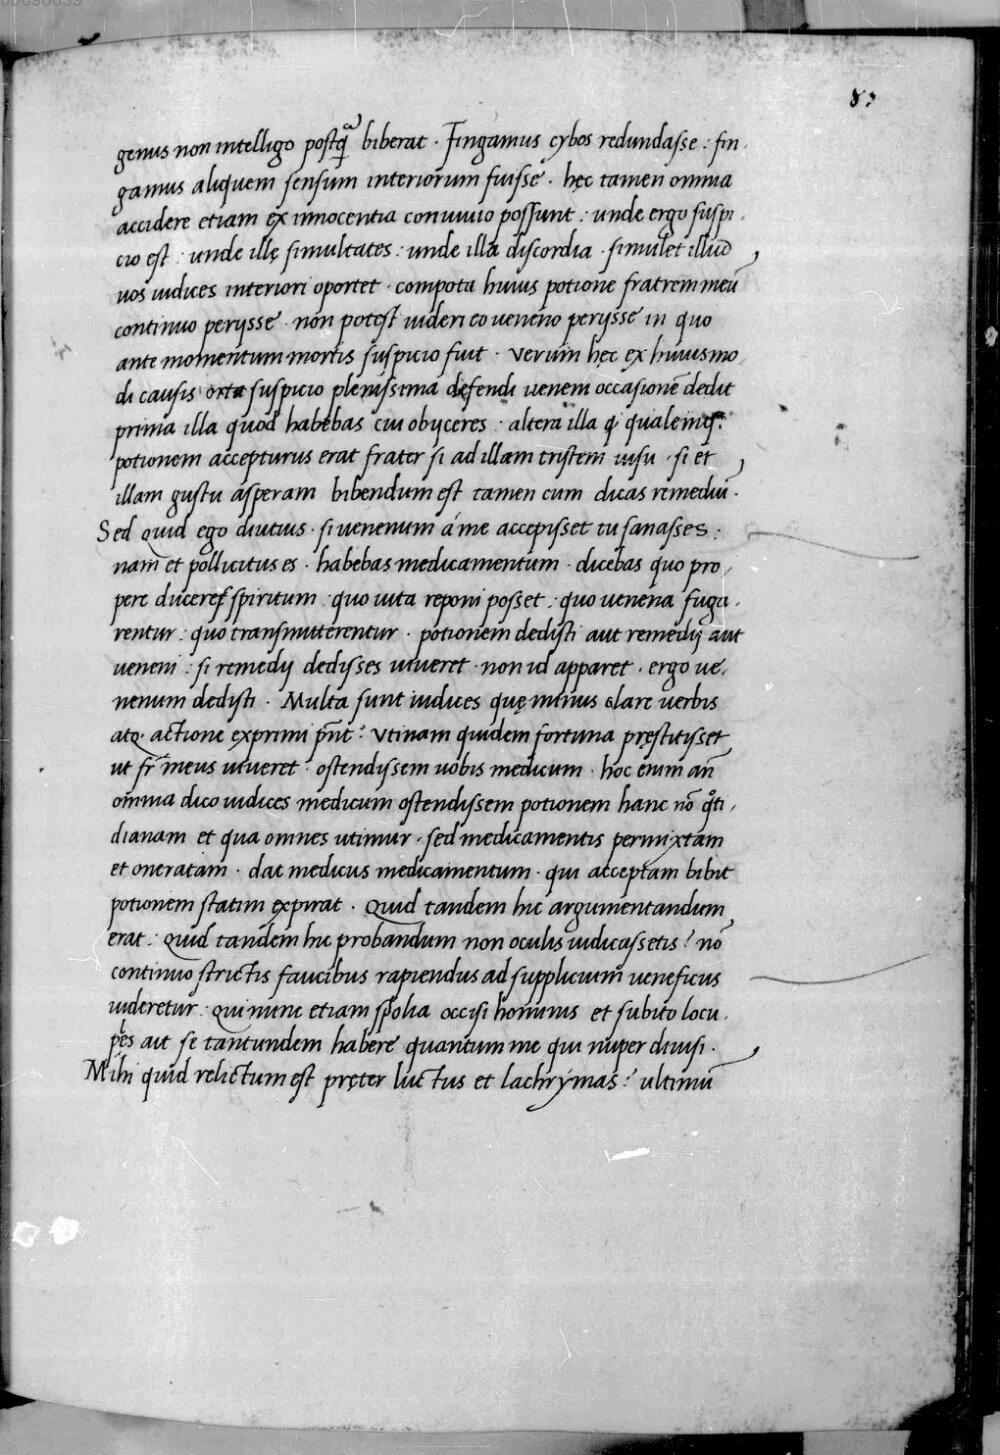 00090839
83
genus non intelligo postq̃ biberat · Fingamus cybos redundasse : fin
gamus aliquem sensum interiorum fuisse · hęc tamen omnia
accidere etiam ex innocentia conuiuio possunt : unde ergo suspi
cio est : unde illę simultates : unde illa discordia · simulet illud
uos iudices interiori oportet · compota huius potione fratrem meũ
continuo perijsse · non potest uideri eo ueneno perijsse in quo
ante momentum mortis suspicio fuit · Verum hęc ex huiusmo
di causis orta suspicio plenissima defendi ueneni occasionẽ dedit
prima illa quod habebas cui obijceres · altera illa q̃ qualemq̃
potionem accepturus erat frater si ad illam tristem uisu · si et
illam gustu asperam bibendum est tamen cum dicas remediũ ·
Sed quid ego diutius · si uenenum á me accepisset tu sanasses :
nam et pollicitus es · habebas medicamentum · dicebas quo pro
pere duceret spiritum : quo uita reponi posset : quo uenena fuga
rentur : quo transmitterentur · potionem dedisti aut remedij aut
ueneni : si remedij dedisses uiueret · non id apparet · ergo ue
nenum dedisti · Multa sunt iudices quę minus clare uerbis
atq̃ actione exprimi pñt : Vtinam quidem fortuna pręstitisset
ut fr̃ meus uiueret · ostendissem uobis medicum · hoc enim añ
omnia dico iudices medicum ostendissem potionem hanc nõ q̊ti
dianam et qua omnes utimur · sed medicamentis permixtam
et oneratam · dat medicus medicamentum · qui acceptam bibit
potionem statim expirat · Quid tandem hic argumentandum
erat : Quid tandem hic probandum non oculis iudicassetis ? nõ
continuo strictis faucibus rapiendus ad supplicium ueneficus
uideretur : Qui nunc etiam spolia occisi hominis et subito locu
ples ait se tantundem habere quantum me qui nuper diuisi ·
Mihi quid relictum est pręter luctus et lachrymas ? ultimũ